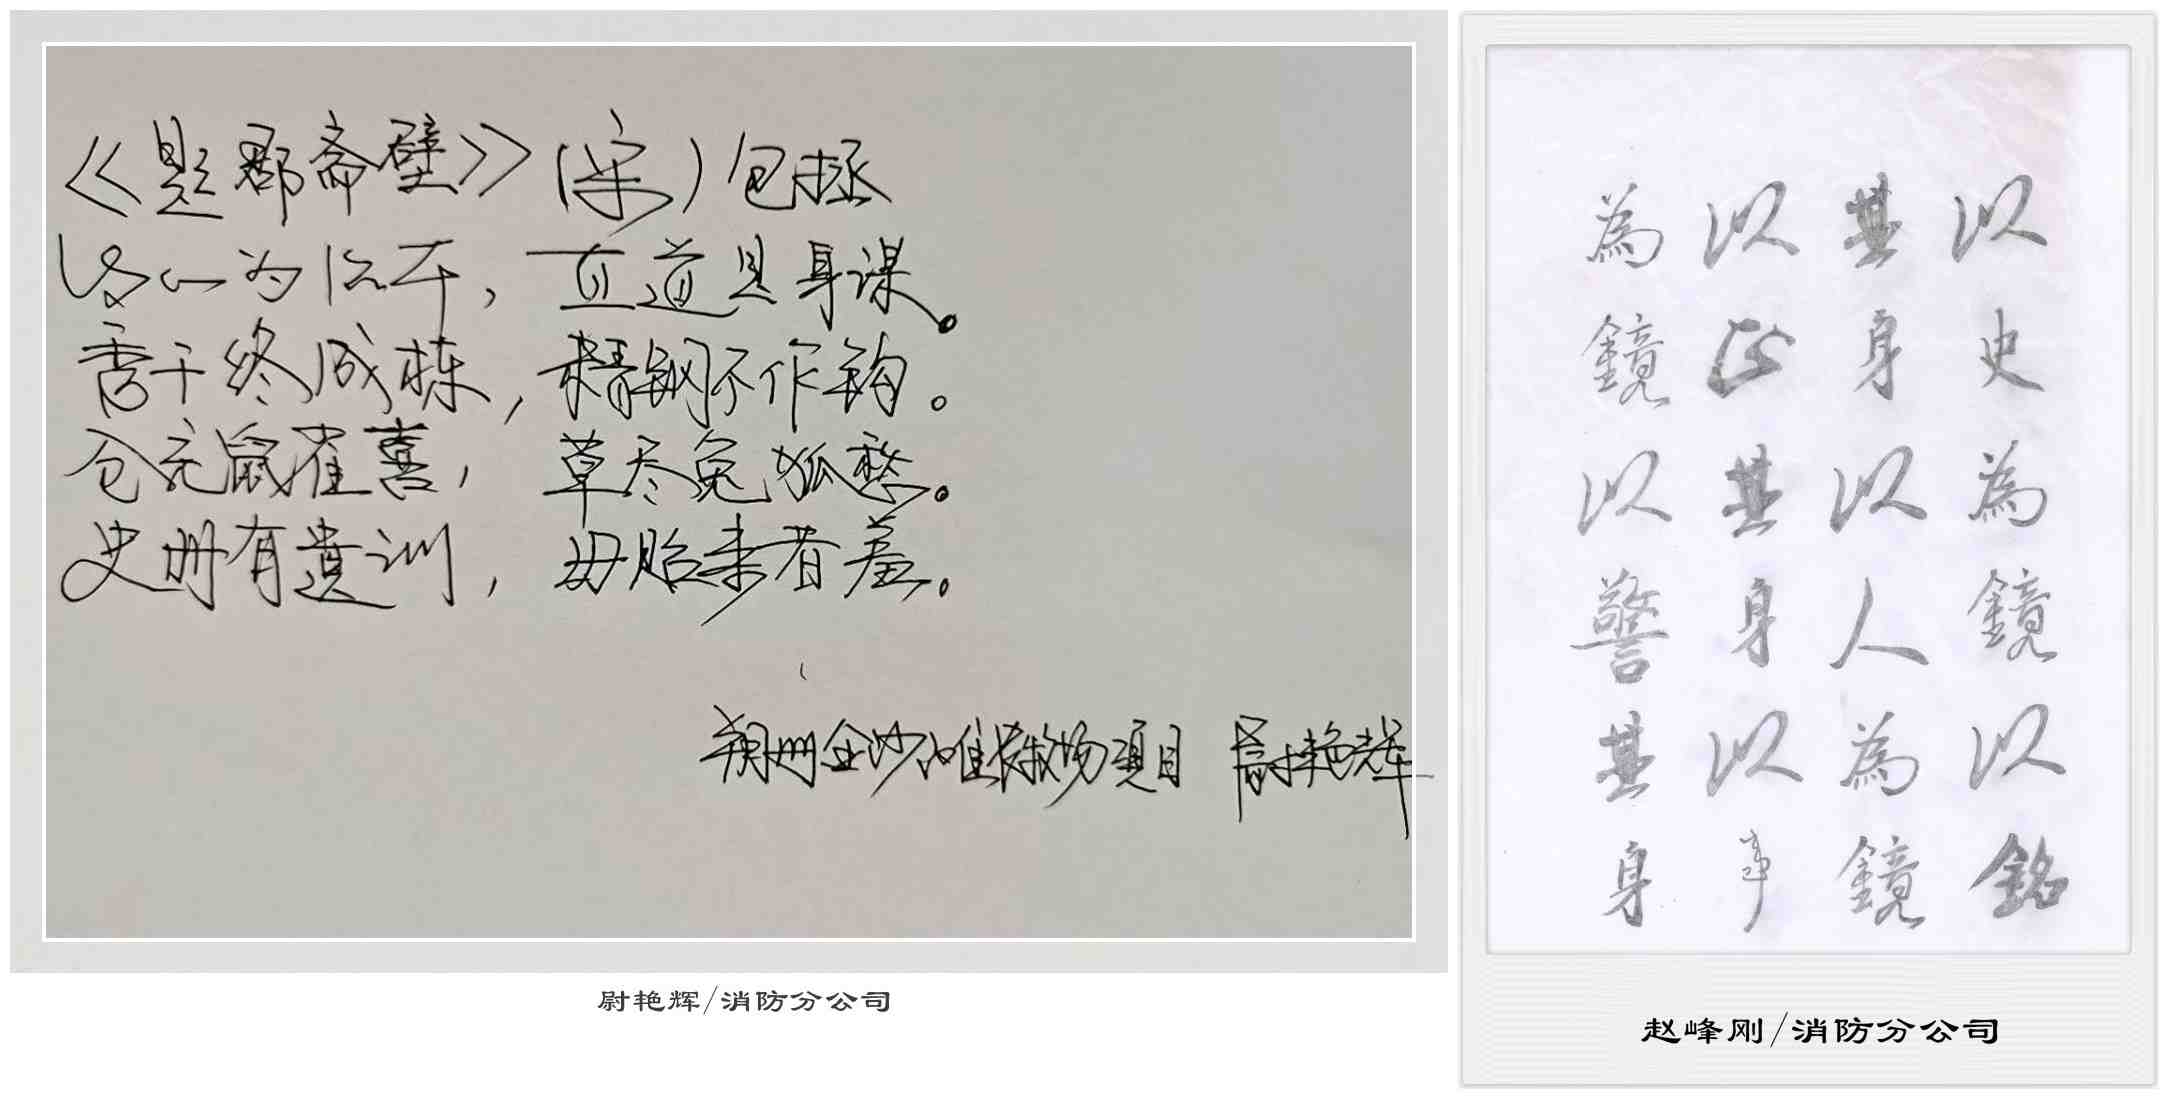 《题郡斋壁》(宋)包拯
清心为治本,直道是身谋。
秀干终成栋,精钢不作钩。
仓充鼠雀喜,草尽兔狐愁。
史册有遗训,毋贻来者羞。
朔州金沙滩牧场项目 尉艳辉
尉艳辉/消防分公司
以史為鏡以銘
其身以人為鏡
以正其身以事
為鏡以警其身
赵峰刚/消防分公司